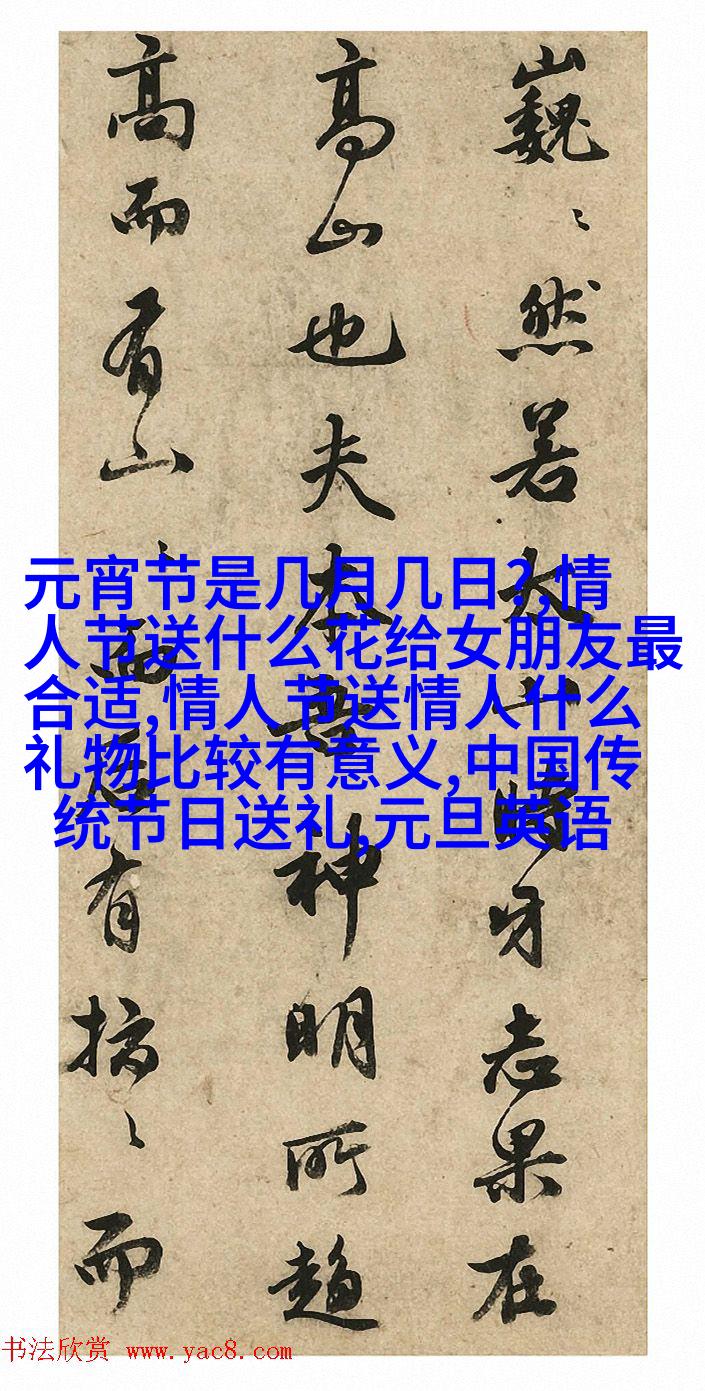 巍〻然若太山時牙志果在
高山也夫本神明所趨
高而有山〻而有〻而
元宵节是几月几日?,情
人节送什么花给女朋友最
合适,情人节送情人什么
礼物比较有意义,中国传
统节日送礼,元旦英语
书法欣赏 www.yac8.com